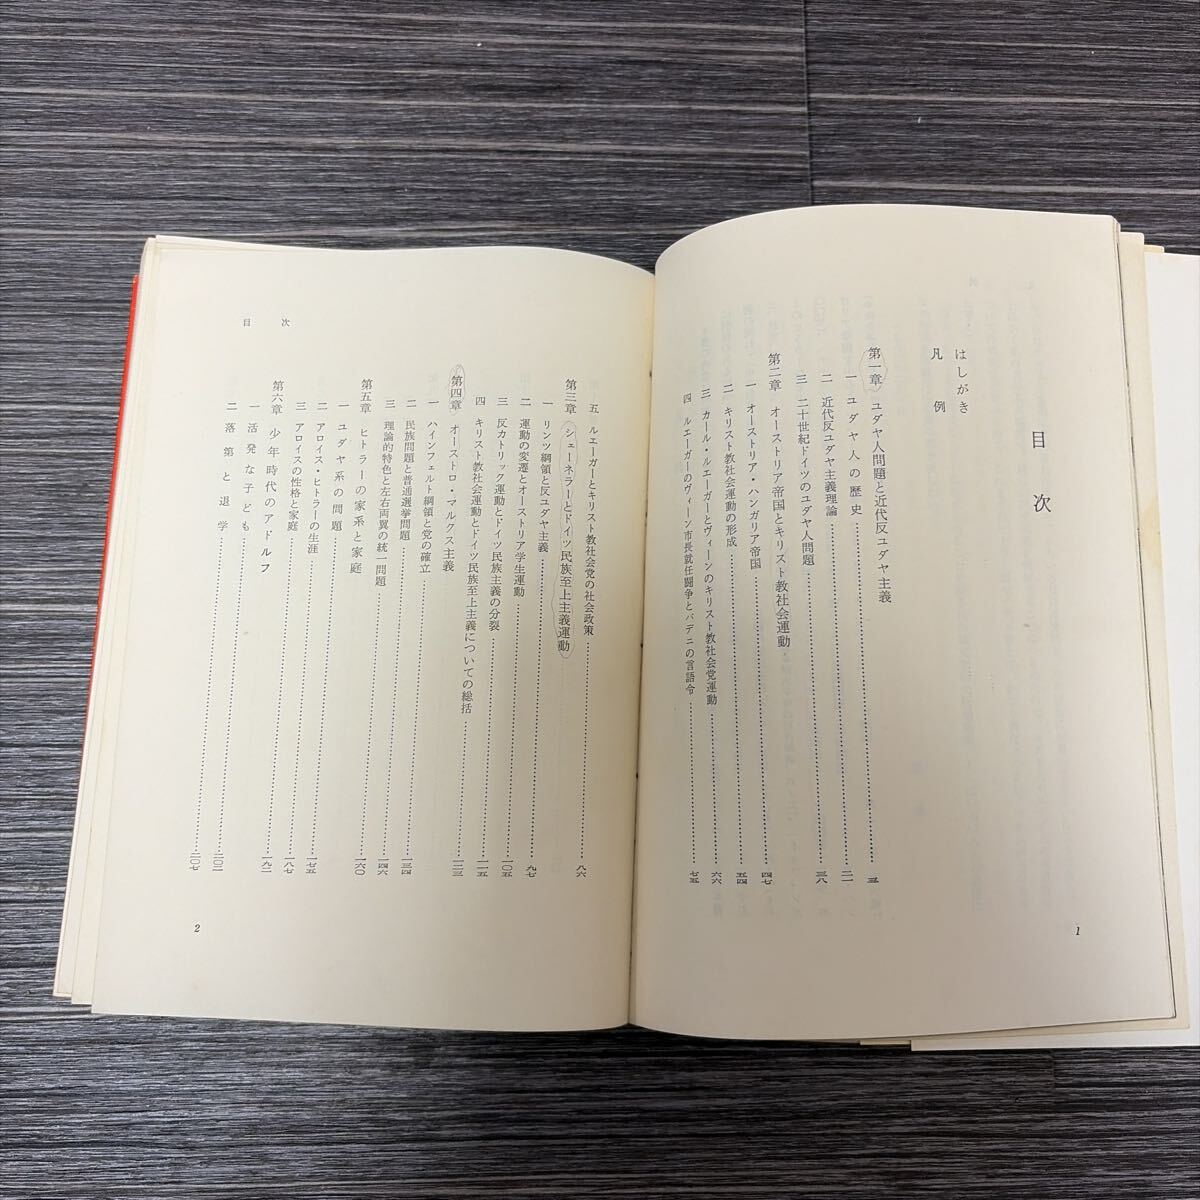 目次
はしがき
凡例
第一章 ユダヤ人問題と近代反ユダヤ主義
一 ユダヤ人の歴史
二 近代反ユダヤ主義理論 二一
三 二十世紀ドイツのユダヤ人問題 三八
第二章 オーストリア帝国とキリスト教社会運動
一 オーストリア・ハンガリア帝国 四七
二 キリスト教社会運動の形成 五四
三 カール・ルエーガーとヴィーンのキリスト教社会党運動 六六
四 ルエーガーのヴィーン市長就任闘争とバデニの言語令 七五
1
五 ルエーガーとキリスト教社会党の社会政策 八六
第三章 シェーネラーとドイツ民族至上主義運動
一 リンツ綱領と反ユダヤ主義 九七
二 運動の変遷とオーストリア学生運動
三 反カトリック運動とドイツ民族主義の分裂 一〇五
四 キリスト教社会運動とドイツ民族至上主義についての総括 一一五
第四章 オーストロ・マルクス主義
一 ハインフェルト綱領と党の確立 一二三
二 民族問題と普通選挙問題 一三四
三 理論的特色と左右両翼の統一問題 一四六
第五章 ヒトラーの家系と家庭
一 ユダヤ系の問題 一六〇
二 アロイス・ヒトラーの生涯 一七五
三 アロイスの性格と家庭 一八七
第六章 少年時代のアドルフ 一九二
一 活発な子ども 二〇二
二 落第と退学 二〇七
目次
2